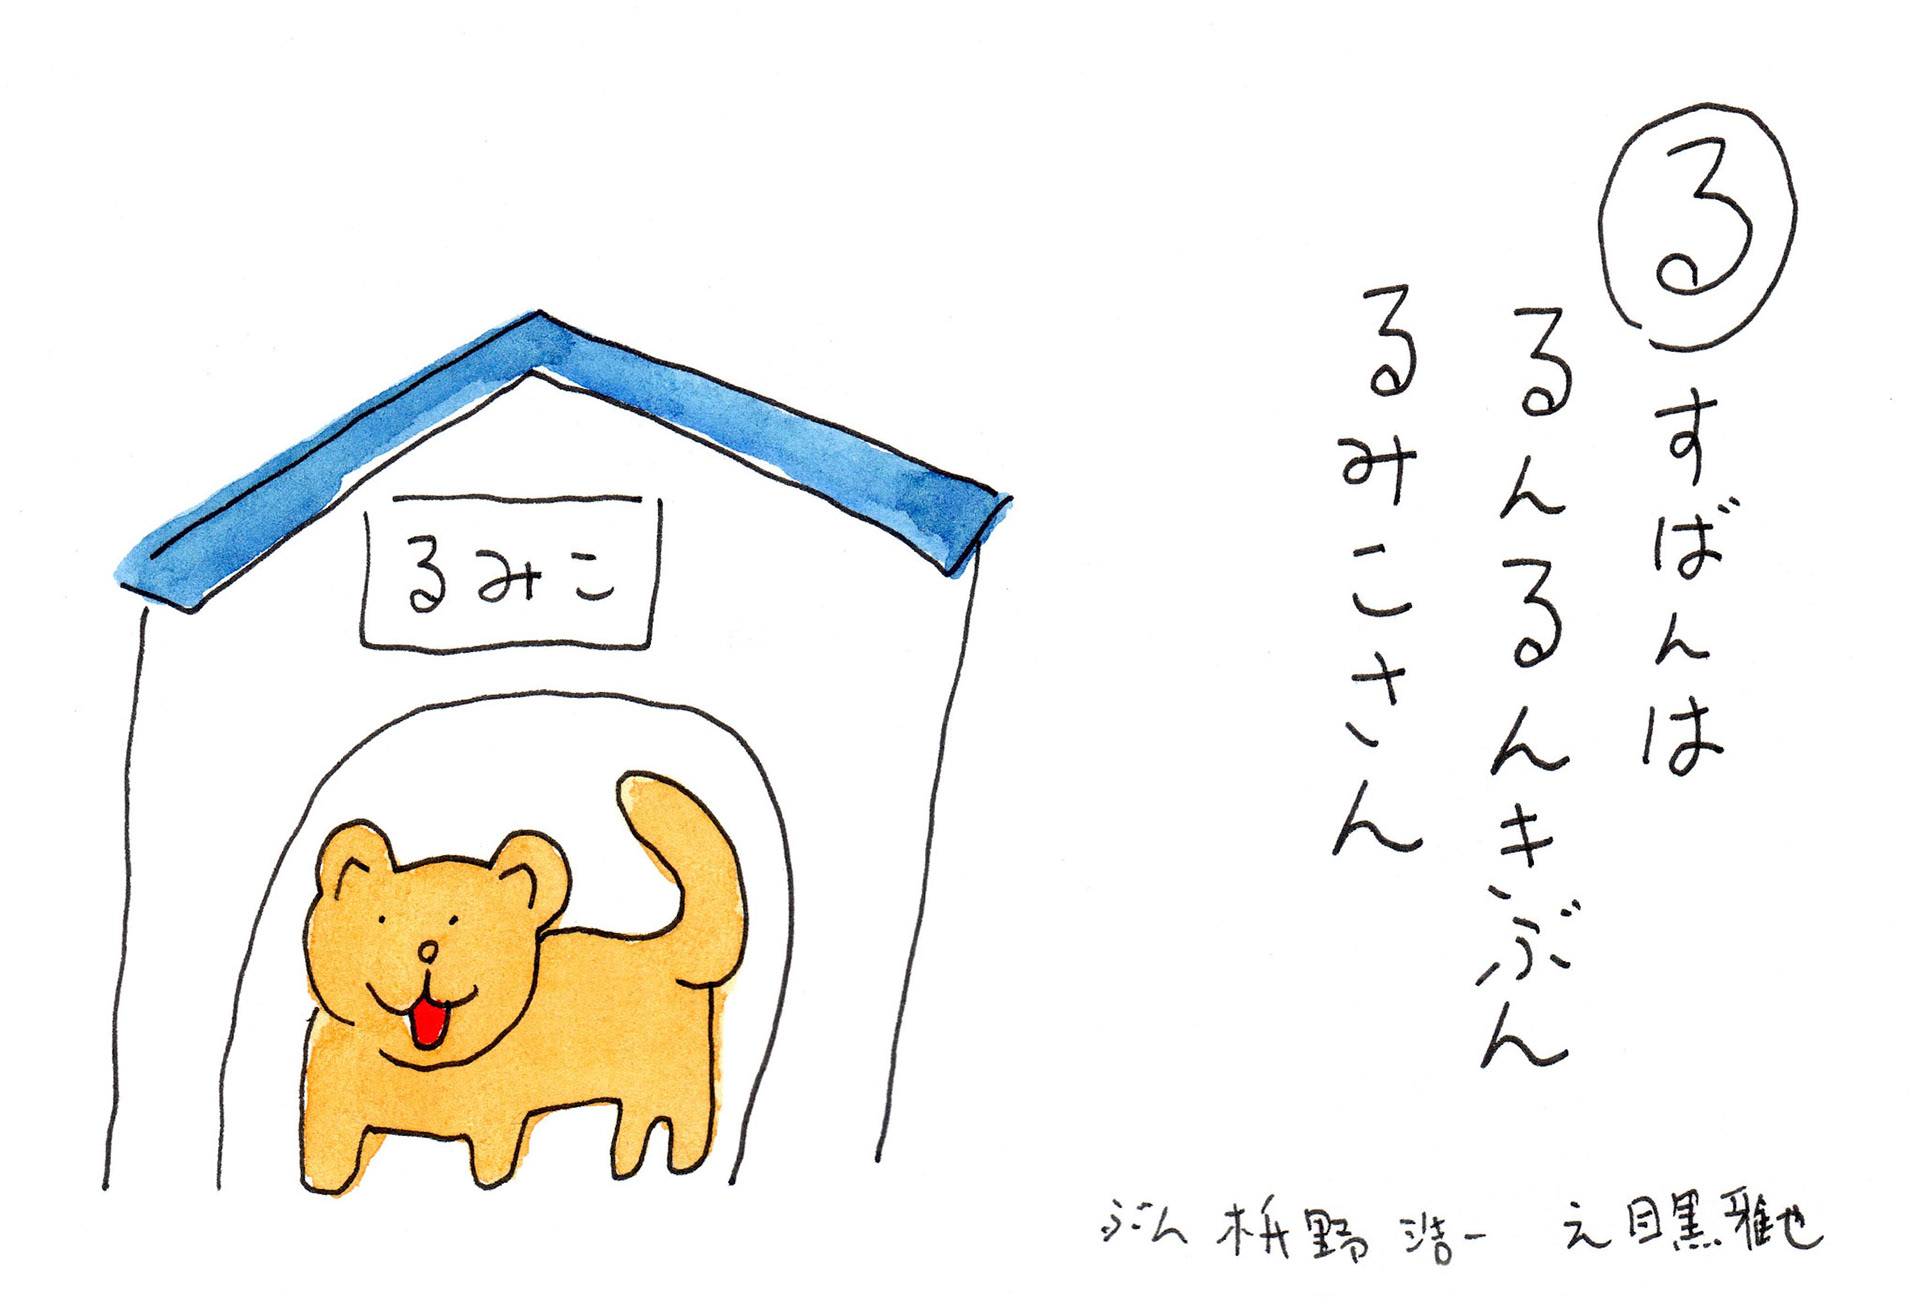 るすばんは
るんるんきぶん
るみこさん
るみこ
ぶん 枡野浩一 え 目黒雅也